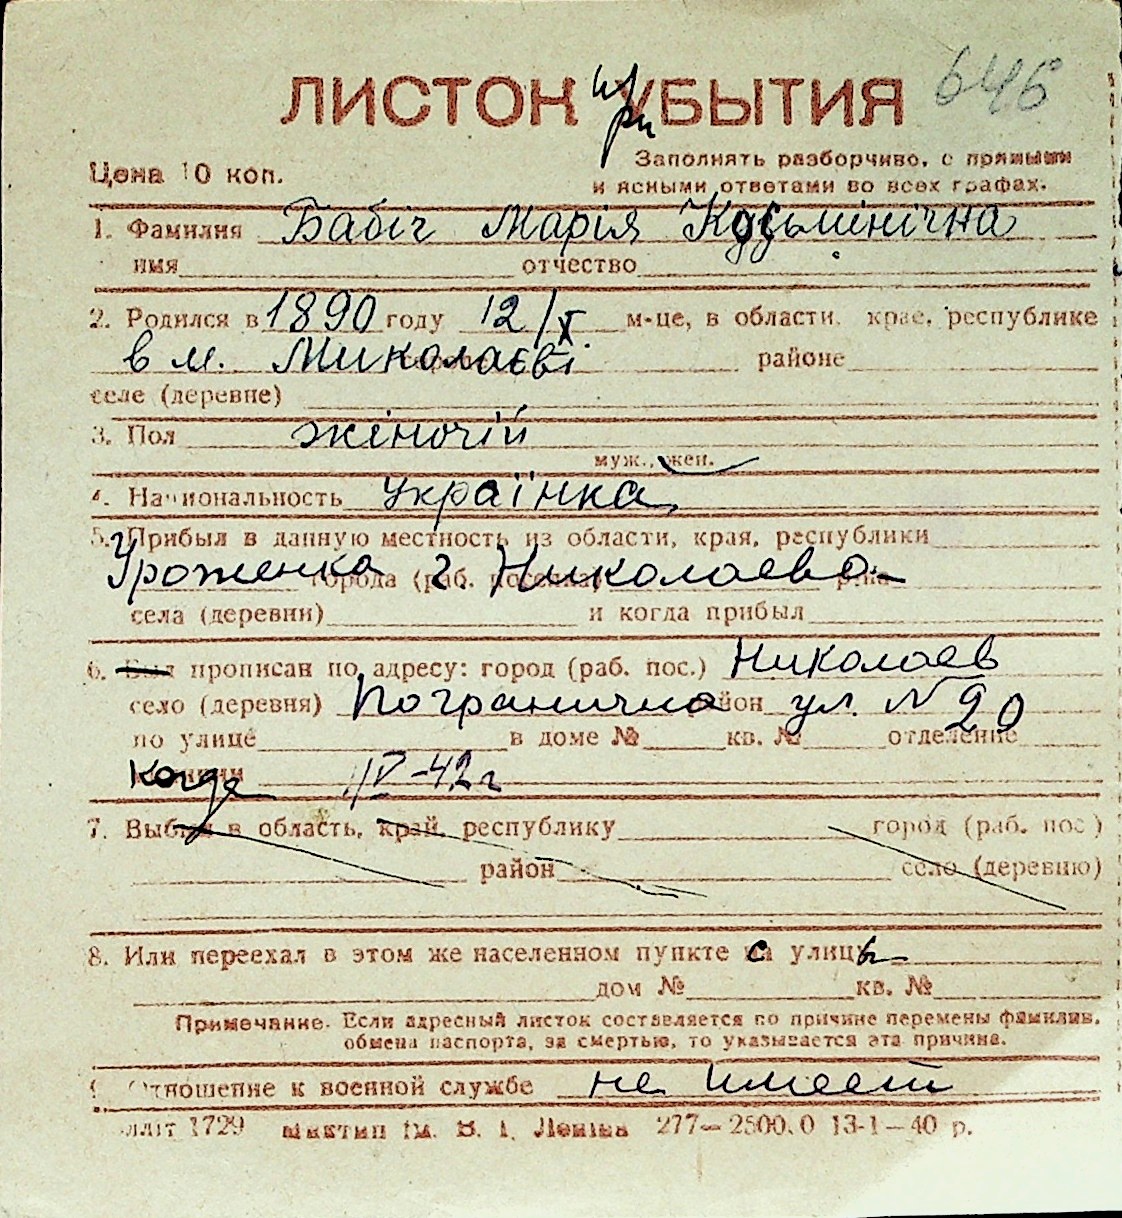 ЛИСТОК при УБЫТИЯ 646
Цена 10 коп. Заполнять разборчиво, с прямыми
и ясными ответами во всех графах.
1. Фамилия Бабіч Марія Кузьмінічна
имя отчество
2. Родился в 1890 году 12/X м-це, в области, крае, республике
в м. Миколаєві районе
селе (деревне)
3. Пол жіночій
муж., жен.
4. Национальность українка
5. Прибыл в данную местность из области, края, республики
Уроженка г. Николаева
города (раб. поселка) р-на
села (деревни) и когда прибыл
6. Был прописан по адресу: город (раб. пос.) Николаев
село (деревня) Погранична район ул. N 20
по улице в доме № кв. № отделение
милиции когда /IV-42 г
7. Выбыл в область, край, республику город (раб. пос.)
район село (деревню)
8. Или переехал в этом же населенном пункте с улицы
дом № кв. №
Примечание. Если адресный листок составляется по причине перемены фамилии,
обмена паспорта, за смертью, то указывается эта причина.
9. Отношение к военной службе не имеет
1729 ім. В. І. Леніна 277—2500.0 13-1—40 р.